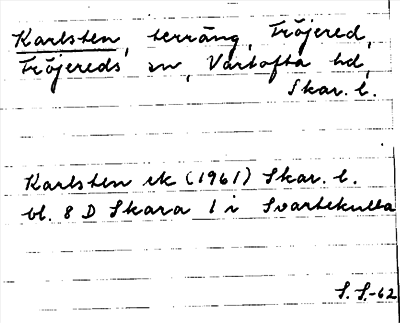 Karlsten, terräng, Fröjered,
Fröjereds sn, Vartofta hd,
Skar. l.
Karlsten ek (1961) Skar. l.
bl. 8 D Skara 1 i Svartekulla
S. S.-62